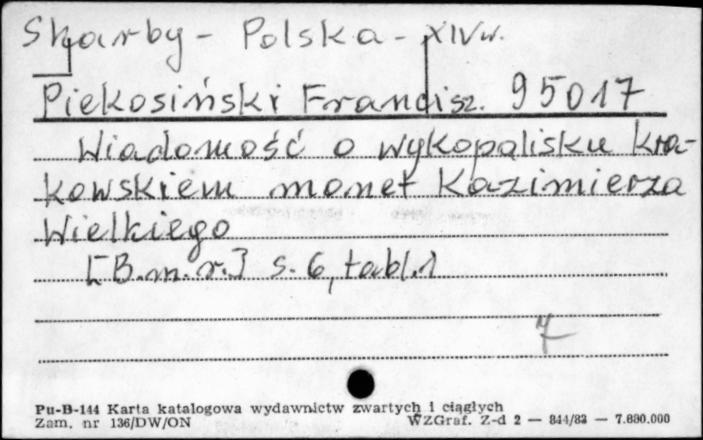 Skarby - Polska - XIV w.
Piekosiński Francisz. 95017
Wiadomość o wykopalisku kra-
kowskiem monet Kazimierza
Wielkiego
[B.m.r.] s. 6, tabl. 1
Pu-B-144 Karta katalogowa wydawnictw zwartych i ciągłych
Zam. nr 136/DW/ON WZGraf. Z-d 2 — 844/83 — 7.830.000